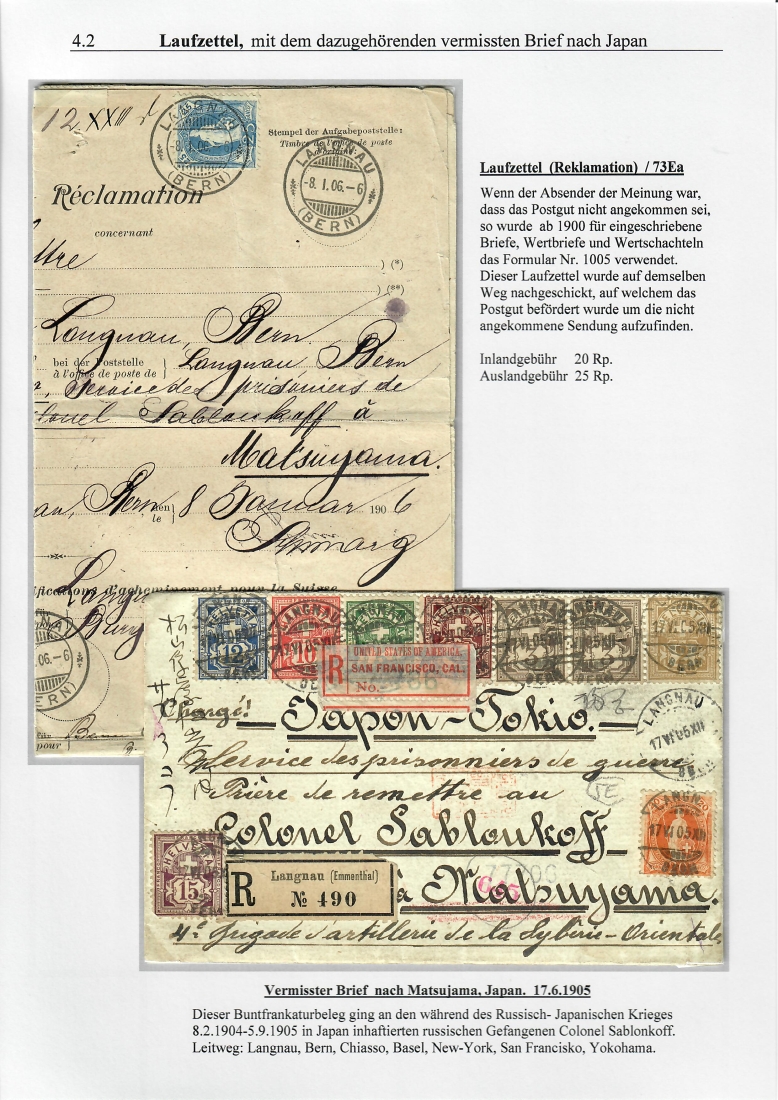 4.2 Laufzettel, mit dem dazugehörenden vermissten Brief nach Japan
12 XXIII
LANGNAU
-8.I.06.
(BERN)
Stempel der Aufgabepoststelle:
Timbre de l'office de poste
d'origine:
LANGNAU
-8.I.06.-6
(BERN)
Réclamation
concernant
ttre
) (*)
) (**)
Langnau, Bern
bei der Poststelle
à l'office de poste de } Langnau Bern
Service des prisoniers de
onel Sablonkoff à
Matsuyama.
Bern den
le } 8 Januar 1906
ifications d'acheminement pour la Suisse
.06.-6
ERN)
pour
Laufzettel (Reklamation) / 73Ea
Wenn der Absender der Meinung war,
dass das Postgut nicht angekommen sei,
so wurde ab 1900 für eingeschriebene
Briefe, Wertbriefe und Wertschachteln
das Formular Nr. 1005 verwendet.
Dieser Laufzettel wurde auf demselben
Weg nachgeschickt, auf welchem das
Postgut befördert wurde um die nicht
angekommene Sendung aufzufinden.
Inlandgebühr 20 Rp.
Auslandgebühr 25 Rp.
HELVETIA
12
10
LANGNAU
17.VI.05.XII
UNITED STATES OF AMERICA.
R SAN FRANCISCO, CAL.
No.
Chargé!
Japon-Tokio.
LANGNAU
17.VI.05.XII
Service des prisonniers de guerre
Prière de remettre au
Colonel Sablonkoff
LANGN
17.VI.05.XII
HELVETIA
15
R Langnau (Emmenthal)
№ 490
à Matsuyama.
4e Brigade d'artillerie de la Sybérie-Orientale
Vermisster Brief nach Matsujama, Japan. 17.6.1905
Dieser Buntfrankaturbeleg ging an den während des Russisch- Japanischen Krieges
8.2.1904-5.9.1905 in Japan inhaftierten russischen Gefangenen Colonel Sablonkoff.
Leitweg: Langnau, Bern, Chiasso, Basel, New-York, San Francisko, Yokohama.